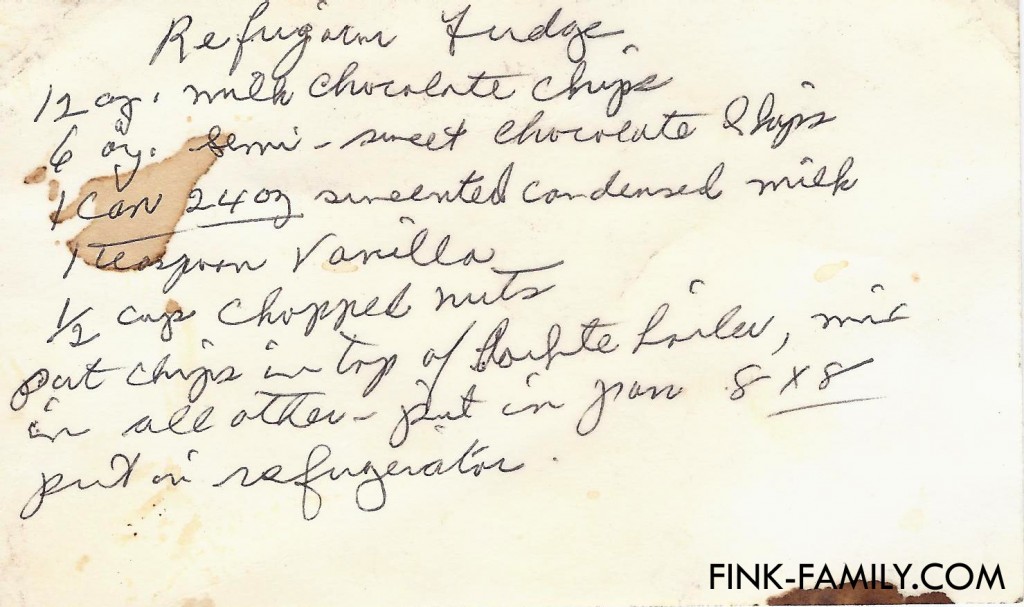 Refrigerator Fudge
12 oz. milk chocolate chips
6 oz. semi-sweet chocolate chips
1 can 24 oz sweented condensed milk
1 teaspoon Vanilla
1/2 cup chopped nuts
put chips in top of double boiler, mix
in all other - put in pan 8 x 8
put in refrigerator.
FINK-FAMILY.COM